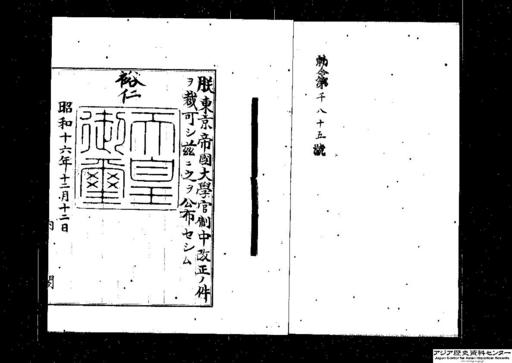 勅令第千八十五號
朕東京帝國大學官制中改正ノ件
ヲ裁可シ茲ニ之ヲ公布セシム
裕仁
天皇
御璽
昭和十六年十二月十二日
内閣
アジア歴史資料センター
Japan Center for Asian Historical Records